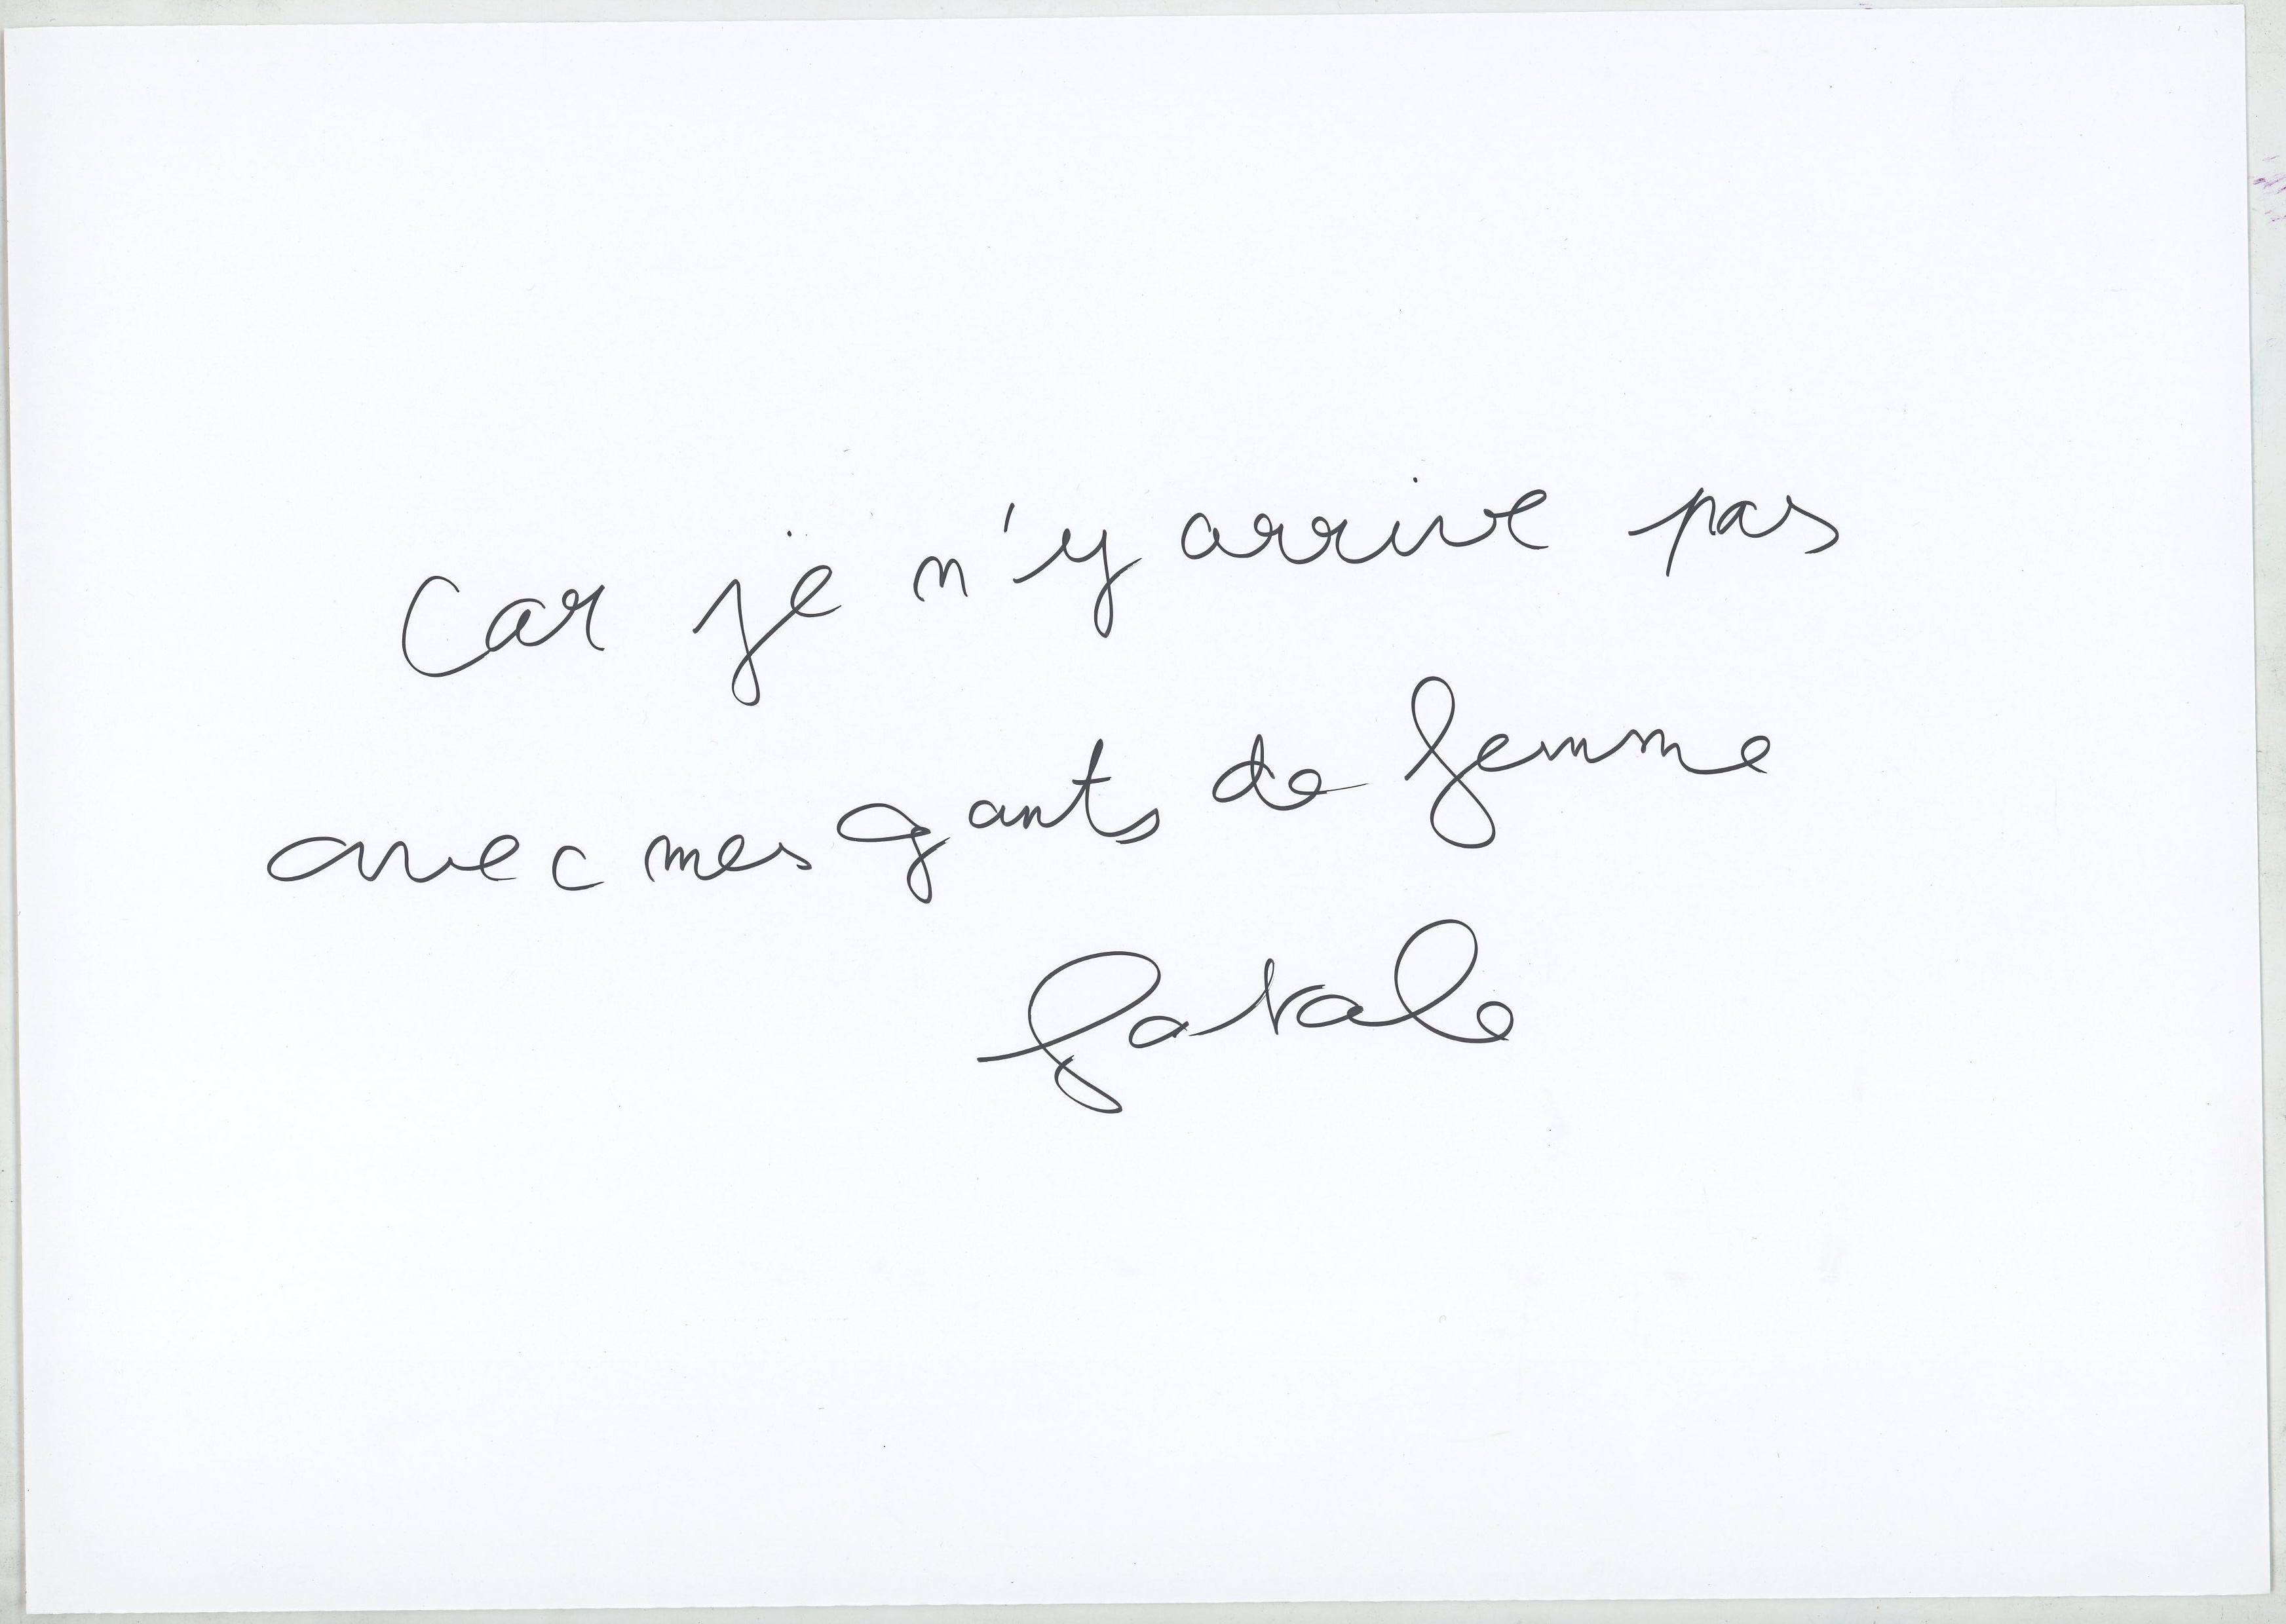 Car je n'y arrive pas
avec mes gants de femme
fatale